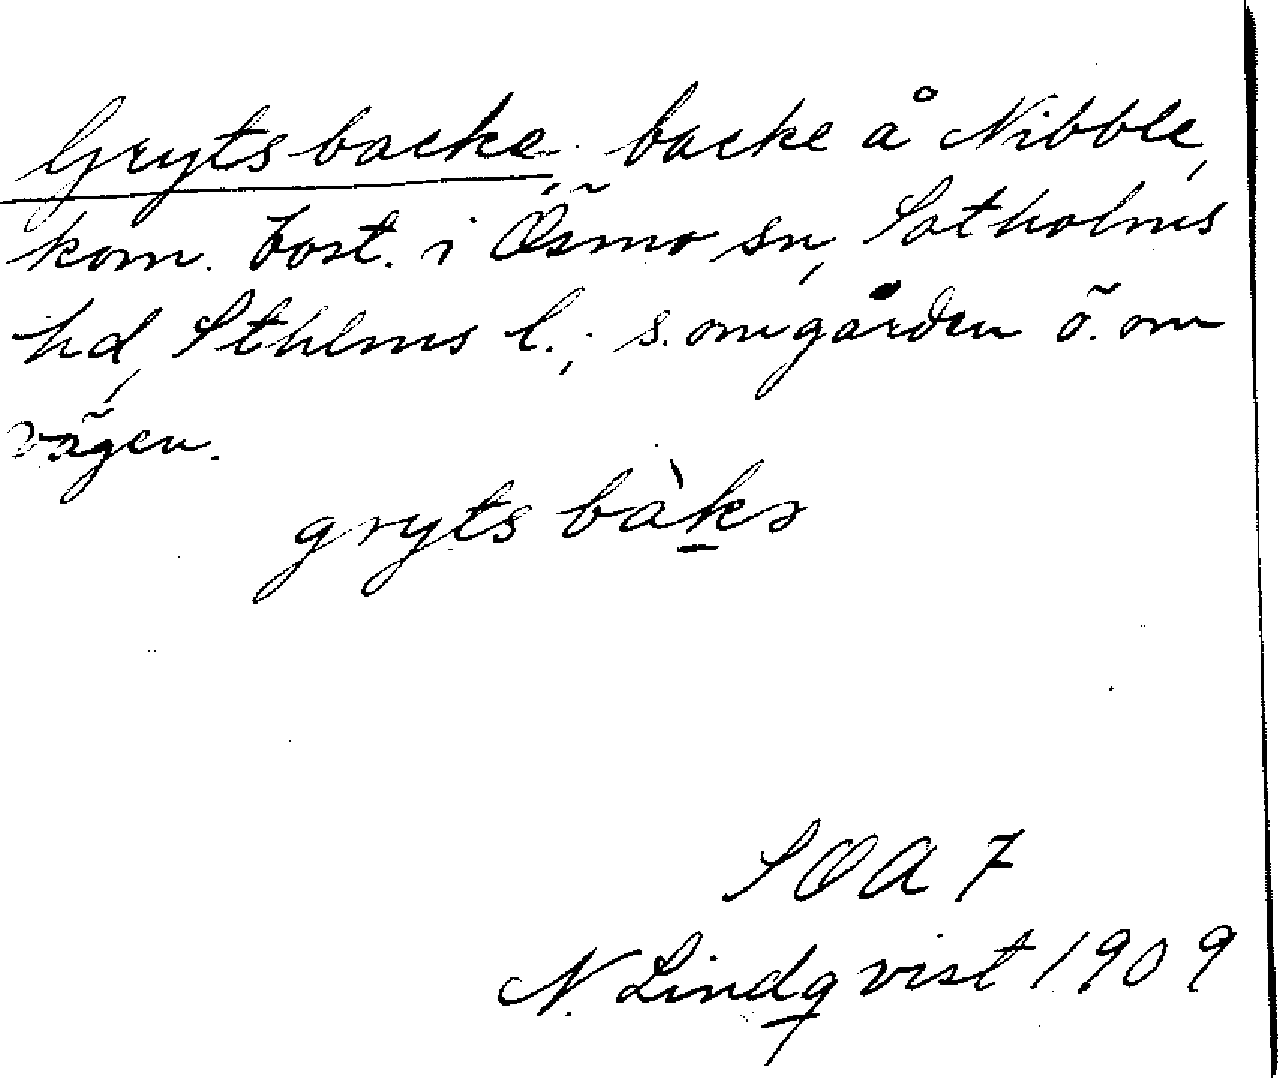 Grytsbacke, backe å Nibble,
kom. bost. i Ösmo sn, Sotholms
hd, Sthlms l.; s. om gården ö. om
vägen.
gryts bàkə
SOA 7
N. Lindqvist 1909